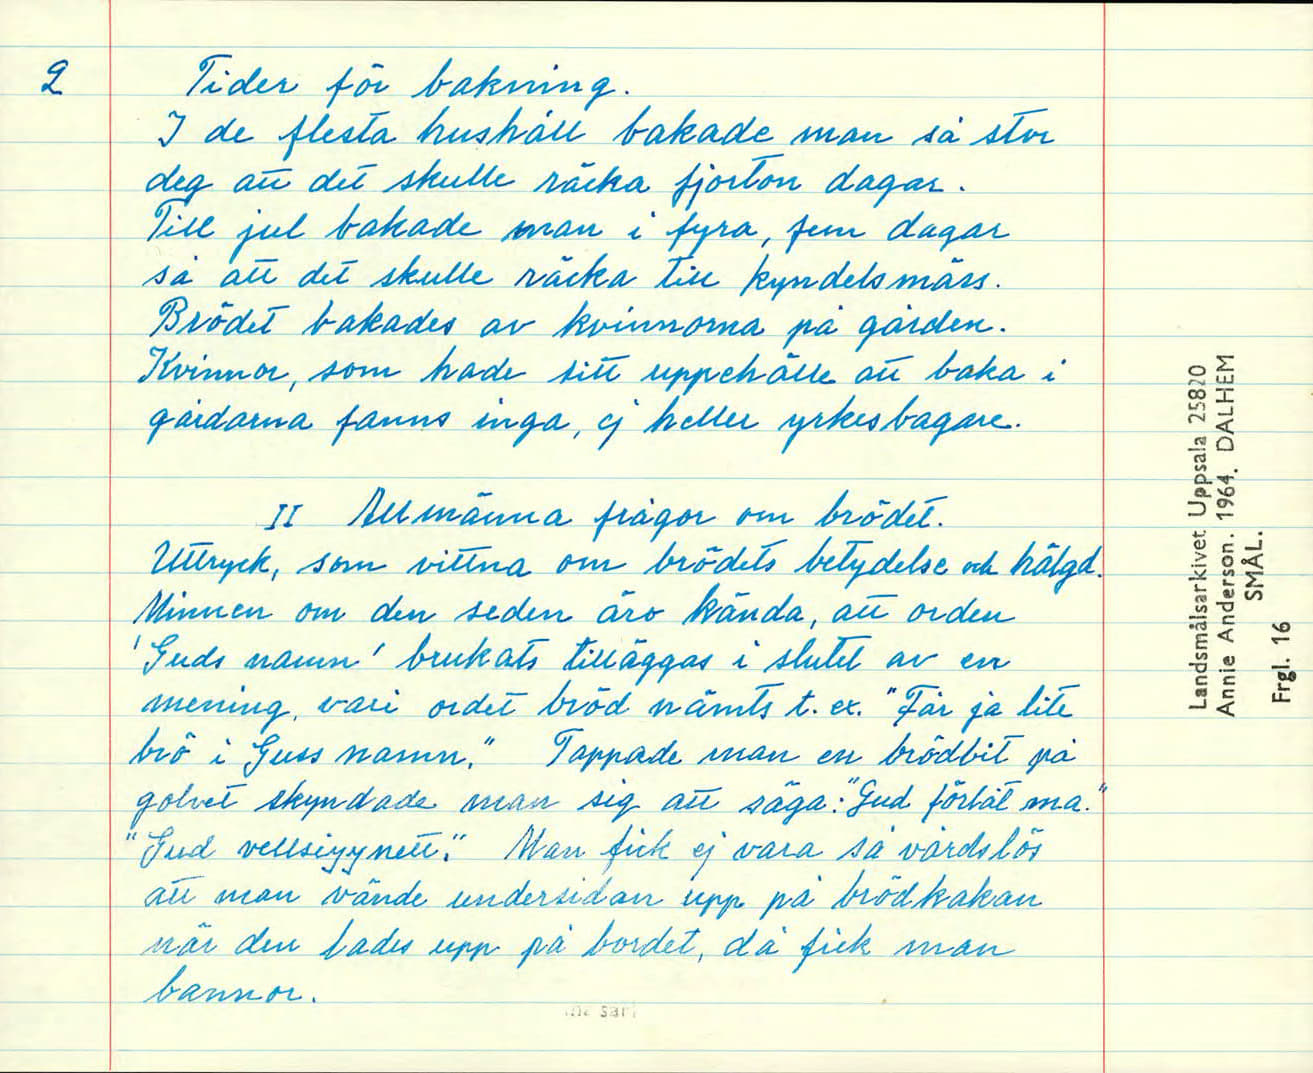 2
Tider för bakning.
I de flesta hushåll bakade man så stor
deg att det skulle räcka fjorton dagar.
Till jul bakade man i fyra, fem dagar
så att det skulle räcka till kyndelsmäss.
Brödet bakades av kvinnorna på gården.
Kvinnor, som hade sitt uppehälle att baka i
gårdarna fanns inga, ej heller yrkesbagare.
II Allmänna frågor om brödet.
Uttryck, som vittna om brödets betydelse och hälgd.
Minnen om den seden äro kända, att orden
'Guds namn' brukats tilläggas i slutet av en
mening, vari ordet bröd nämts t. ex. "Får ja lite
brö i Guss namn." Tappade man en brödbit på
golvet skyndade man sig att säga: "Gud förlåt ma."
"Gud vellsiyynett." Man fick ej vara så vårdslös
att man vände undersidan upp på brödkakan
när den lades upp på bordet, då fick man
bannor.
Landsmålsarkivet Uppsala 25820
Annie Anderson. 1964. DALHEM
SMÅL.
Frgl. 16